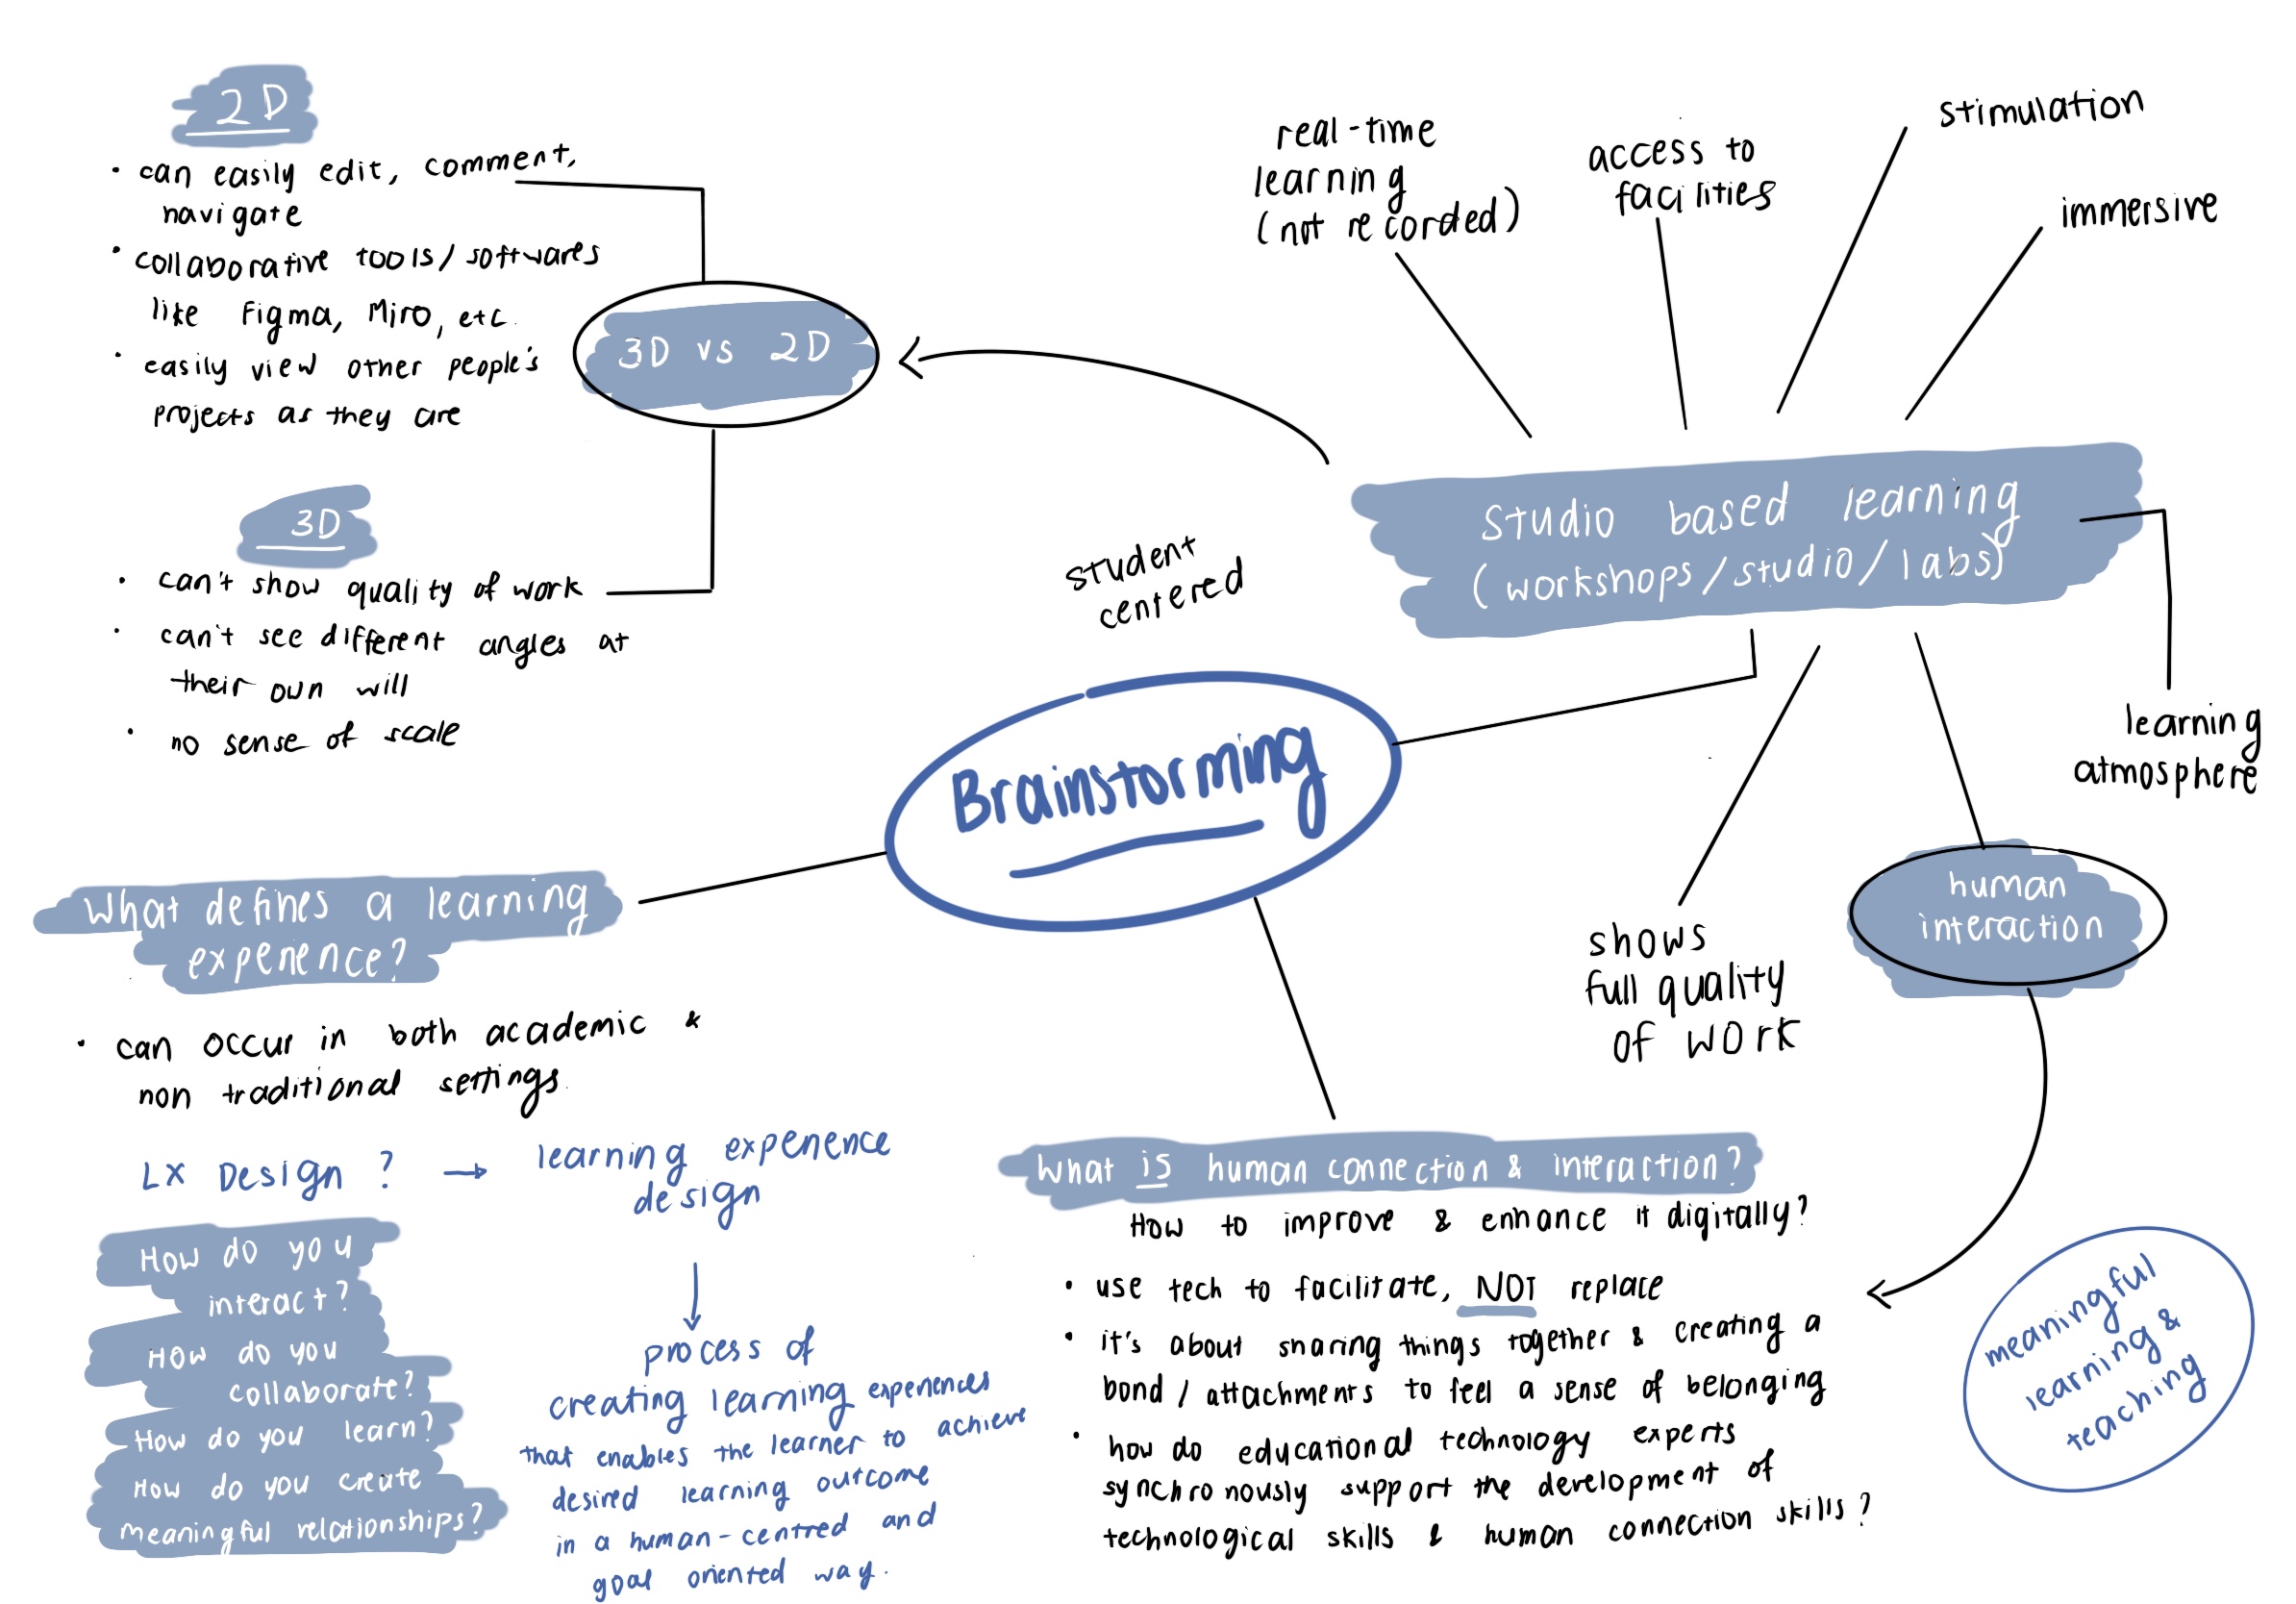 2D
• can easily edit, comment,
navigate
• collaborative tools/softwares
like Figma, Miro, etc.
• easily view other people's
projects as they are
3D vs 2D
3D
• can't show quality of work
• can't see different angles at
their own will
• no sense of scale
real-time
learning
(not recorded)
access to
facilities
stimulation
immersive
Studio based learning
(workshops/studio/labs)
student
centered
learning
atmosphere
Brainstorming
shows
full quality
of work
human
interaction
What defines a learning
experience?
• can occur in both academic &
non traditional settings.
LX Design? → learning experience
design
How do you
interact?
How do you
collaborate?
How do you learn?
How do you create
meaningful relationships?
process of
creating learning experiences
that enables the learner to achieve
desired learning outcome
in a human-centred and
goal oriented way.
What is human connection & interaction?
How to improve & enhance it digitally?
• use tech to facilitate, NOT replace
• it's about sharing things together & creating a
bond/attachments to feel a sense of belonging
• how do educational technology experts
synchronously support the development of
technological skills & human connection skills?
meaningful
learning &
teaching